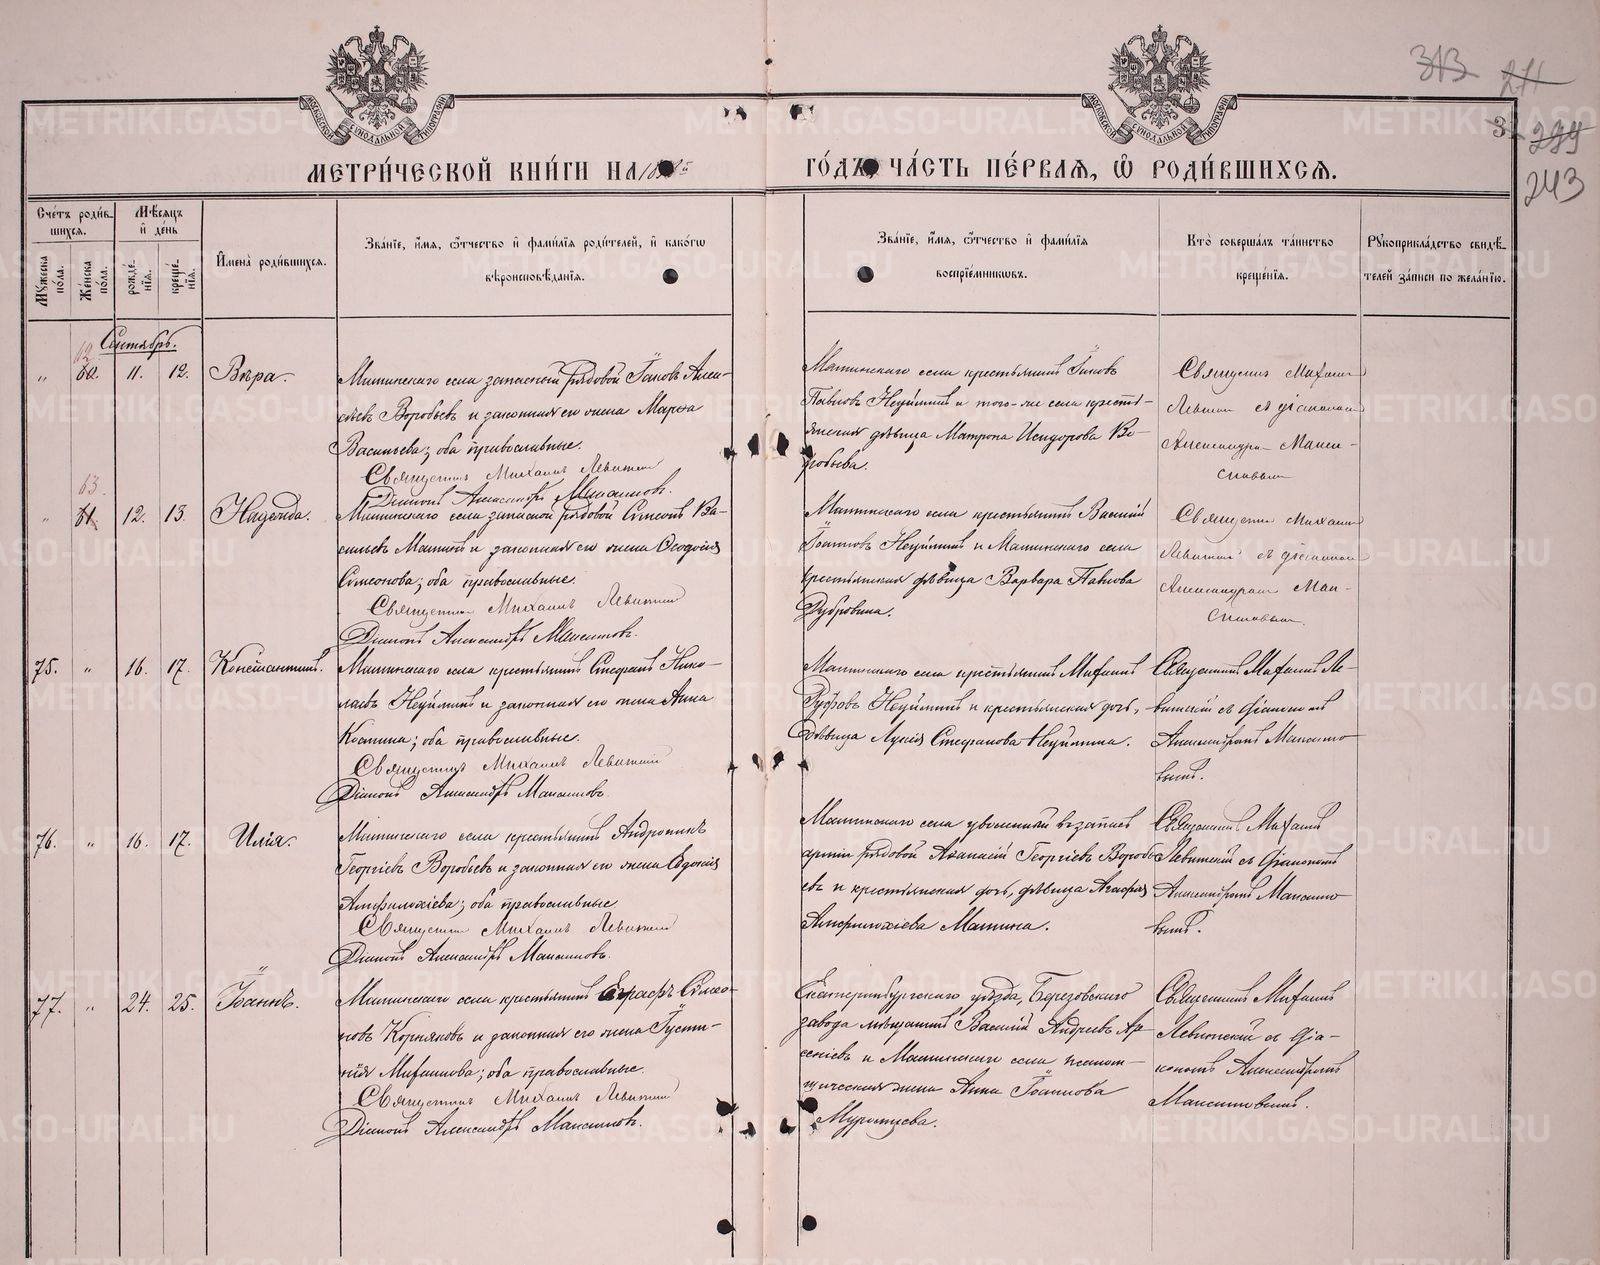 МОСКОВСКОЙ СѴНОДАЛЬНОЙ ТИПОГРАФИИ
МОСКОВСКОЙ СѴНОДАЛЬНОЙ ТИПОГРАФИИ
313 271
3 299
243
МЕТРИ́ЧЕСКОЙ КНИ́ГИ НА 18
ГО́ДЪ, ЧА́СТЬ ПЕ́РВАЯ, Ѡ҆ РОДИ́ВШИХСЯ.
Сче́тъ роди́в-
шихся.
Мѣ́сяцъ
и҆ де́нь
И҆мена̀ роди́вшихся.
Зва́нїе, и҆́мя, ѻ҆́тчество и҆ фами́лїя роди́телей, и҆ како́гѡ
вѣроисповѣ́данїя.
Зва́нїе, и҆́мя, ѻ҆́тчество и҆ фами́лїя
воспрїе́мниковъ.
Кто̀ соверша́лъ та́инство
креще́нїя.
Рукоприкла́дство свидѣ́-
телей за́писи по жела́нїю.
Му́жеска
по́ла.
Же́нска
по́ла.
рожде́-
нїя.
креще́-
нїя.
Сентябрь.
62
„ 11. 12. Вѣра.
Мамынскаго села запасный рядовой Іаковъ Алек-
сѣевъ Воробьевъ и законная его жена Марѳа
Васильева; оба православные.
Священникъ Михаилъ Левитскій
Діаконъ Александръ Максимовъ.
Мамынскаго села крестьянинъ Іаковъ
Павловъ Неуйминъ и того-же села кресть-
янская дѣвица Матрона Исидорова Во-
робьева.
Священник Михаил
Левитскій съ діакономъ
Александромъ Макси-
мовымъ
63.
„ 61. 12. 13. Надежда.
Мамынскаго села запасной рядовой Симеонъ Ва-
сильевъ Маминъ и законная его жена Ѳеодосія
Симеонова; оба православные.
Священникъ Михаилъ Левитскій
Діаконъ Александръ Максимовъ.
Мамынскаго села крестьянинъ Василій
Іоанновъ Неуйминъ и Мамынскаго села
крестьянская дѣвица Варвара Павлова
Дубровина.
Священник Михаил
Левитскій съ діакономъ
Александромъ Мак-
симовым.
75. „ 16. 17. Константинъ.
Мамынскаго села крестьянинъ Стефанъ Нико-
лаевъ Неуйминъ и законная его жена Анна
Космина; оба православные.
Священникъ Михаилъ Левитскій
Діаконъ Александръ Максимовъ
Мамынскаго села крестьянинъ Михаилъ
Руфовъ Неуйминъ и крестьянская дочь,
дѣвица Лукія Стефанова Неуймина.
Священникъ Михаилъ Ле-
витскій съ діакономъ
Александромъ Максимо-
вымъ.
76. „ 16. 17. Илія.
Мамынскаго села крестьянинъ Андроникъ
Георгіевъ Воробьевъ и законная его жена Евдокія
Амфилохіева; оба православные
Священникъ Михаилъ Левитскій
Діаконъ Александръ Максимовъ.
Мамынскаго села уволенный въ запасъ
арміи рядовой Аѳанасій Георгіевъ Воробь-
евъ и крестьянская дочь, дѣвица Агафія
Амфилохіева Мамина.
Священникъ Михаилъ
Левитскій съ Діакономъ
Александромъ Максимо-
вымъ.
77. „ 24. 25. Іоаннъ.
Мамынскаго села крестьянинъ Евграфъ Симео-
новъ Корняковъ и законная его жена Іусти-
нія Михаилова; оба православные.
Священникъ Михаилъ Левитскій
Діаконъ Александръ Максимовъ.
Екатеринбургскаго уѣзда, Березовскаго
завода мѣщанинъ Василій Андреевъ Ар-
сеніевъ и Мамынскаго села псалом-
щическая жена Анна Іоаннова
Муромцева.
Священникъ Михаилъ
Левитскій съ діа-
кономъ Александромъ
Максимовымъ.
METRIKI.GASO-URAL.RU